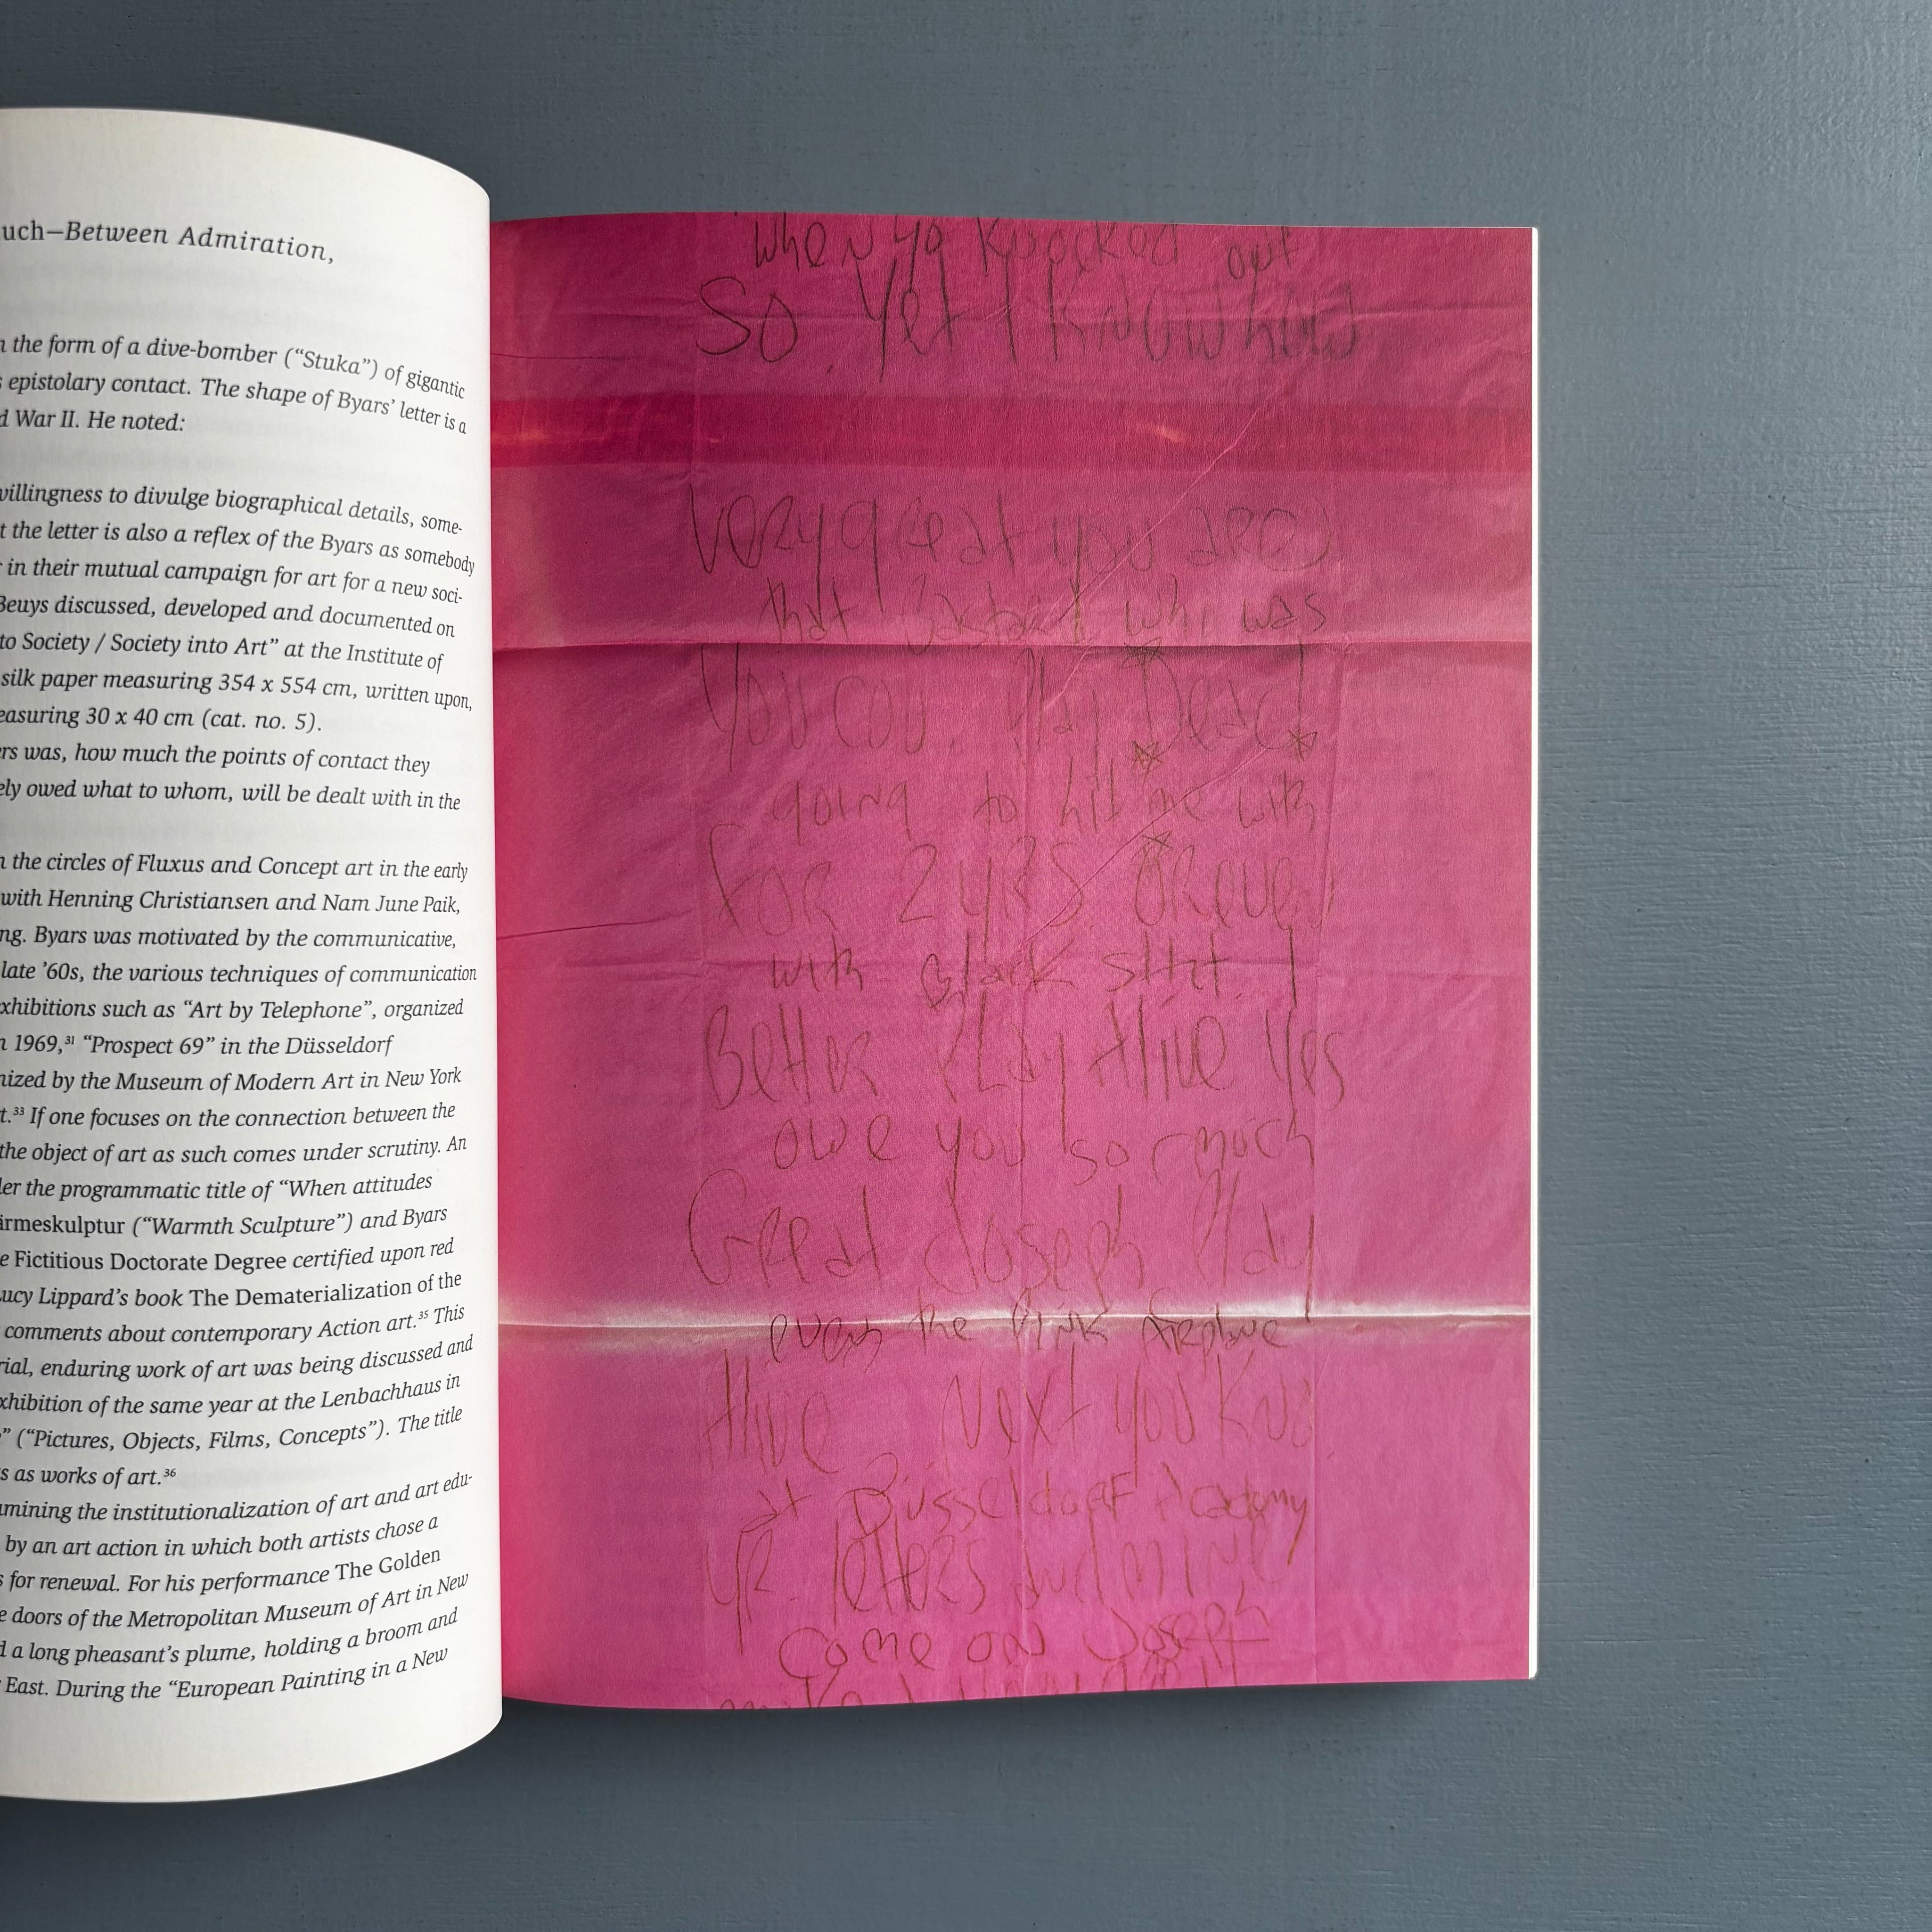 uch—Between Admiration,
n the form of a dive-bomber (“Stuka”) of gigantic
s epistolary contact. The shape of Byars’ letter is a
d War II. He noted:
willingness to divulge biographical details, some-
t the letter is also a reflex of the Byars as somebody
r in their mutual campaign for art for a new soci-
Beuys discussed, developed and documented on
to Society / Society into Art” at the Institute of
silk paper measuring 354 x 554 cm, written upon,
easuring 30 x 40 cm (cat. no. 5).
rs was, how much the points of contact they
ely owed what to whom, will be dealt with in the
n the circles of Fluxus and Concept art in the early
with Henning Christiansen and Nam June Paik,
ng. Byars was motivated by the communicative,
late ’60s, the various techniques of communication
xhibitions such as “Art by Telephone”, organized
n 1969,³¹ “Prospect 69” in the Düsseldorf
nized by the Museum of Modern Art in New York
t.³³ If one focuses on the connection between the
the object of art as such comes under scrutiny. An
der the programmatic title of “When attitudes
ärmeskulptur (“Warmth Sculpture”) and Byars
e Fictitious Doctorate Degree certified upon red
ucy Lippard’s book The Dematerialization of the
comments about contemporary Action art.³⁵ This
rial, enduring work of art was being discussed and
xhibition of the same year at the Lenbachhaus in
” (“Pictures, Objects, Films, Concepts”). The title
s as works of art.³⁶
mining the institutionalization of art and art edu-
by an art action in which both artists chose a
s for renewal. For his performance The Golden
e doors of the Metropolitan Museum of Art in New
d a long pheasant’s plume, holding a broom and
East. During the “European Painting in a New
when yo knocked out
So yet I know how
very great you are
that Bastard who was
You cou. Play Dead
going to hit me with
For 2 yRS.
with Black shit. I
Better Play Alive Yes
owe you so much
Great Joseph Play
even the Pink Airplane
Alive Next you
at Düsseldorf Academy
yr. letters and mine
Come on Joseph